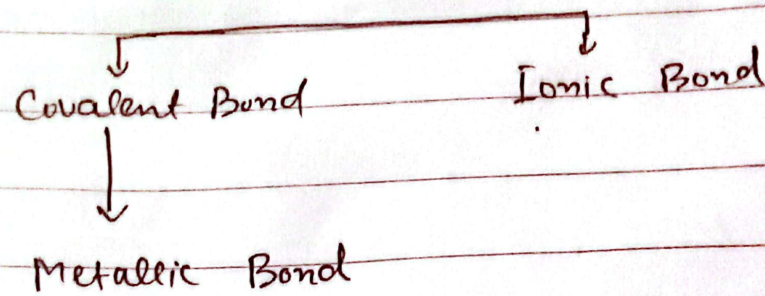 Covalent Bond Ionic Bond
Metallic Bond